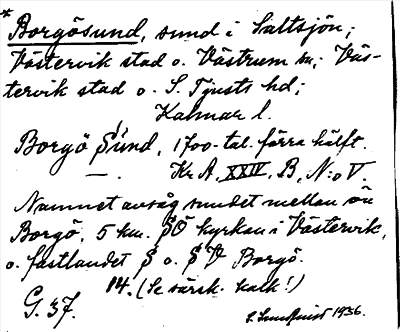 * Borgösund, sund i Saltsjön;
Västervik stad o. Västrum sn; Väs-
tervik stad o. S. Tjusts hd;
Kalmar l.
Borgö Sund, 1700-tal. förra hälft.
—. Kr A, XXIV, B, N:o V.
Namnet avsåg sundet mellan ön
Borgö, 5 km. SÖ kyrkan i Västervik,
o. fastlandet S o. S V Borgö.
G. 37. 14. (Se särsk. kalk!)
S. Sundquist 1936.